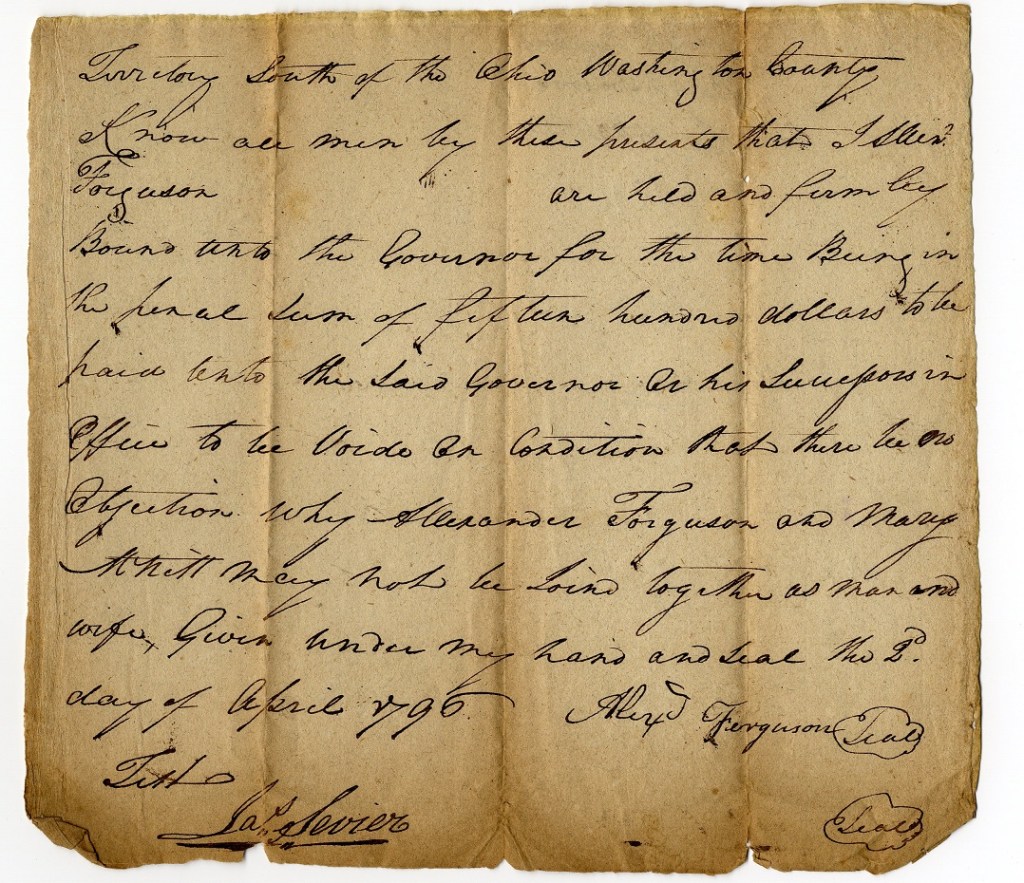 Territory South of the Ohio Washington County
Know all men by these presents that I Allexr
Forguson are held and firmley
Bound unto the Governor for the time Being in
the penal Sum of fifteen hundred dollars to be
paid unto the Said Governor Or his Sucessors in
Office to be Voide On Condition that there be no
Objection why Allexander Forguson and Mary
may not be Joind together as man and
wife, Given under my hand and Seal the 2d.
day of April 1796
Alexd Ferguson Seal
Test
Jas Sevier
Seal